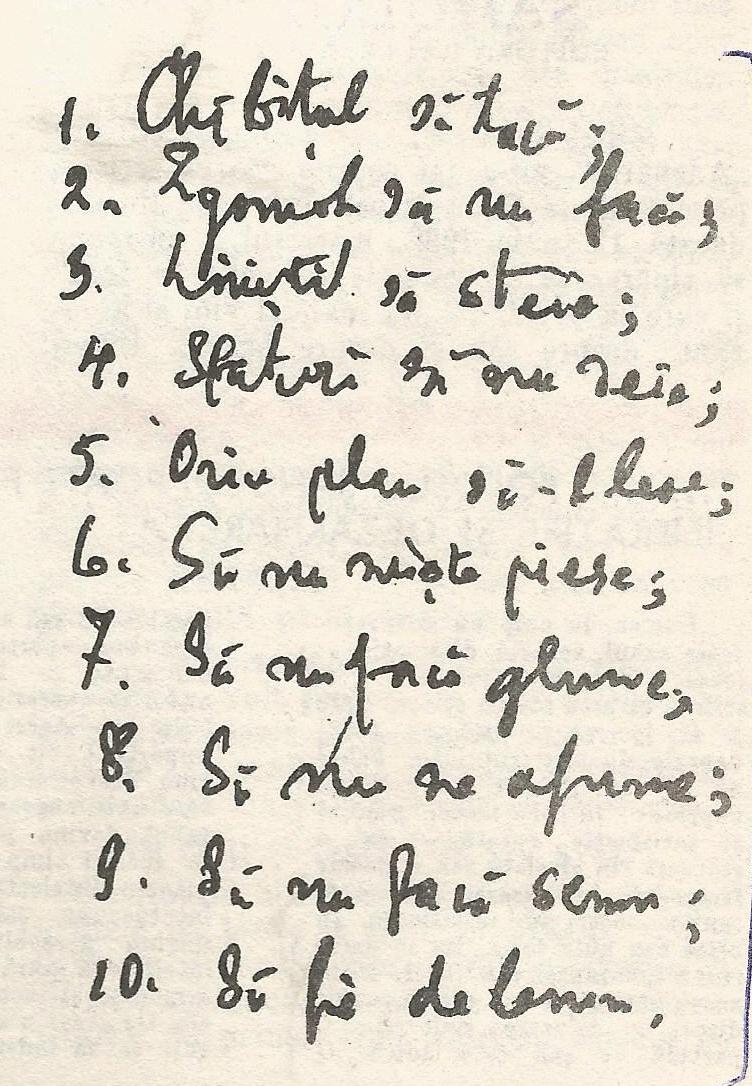 1. Chibițul să tacă;
2. Zgomot să nu facă;
3. Liniștit să steie;
4. Sfaturi să nu deie;
5. Orice plan să-l lese;
6. Să nu miște piese;
7. Să nu facă glume;
8. Să nu se afume;
9. Să nu facă semn;
10. Să fie de lemn.